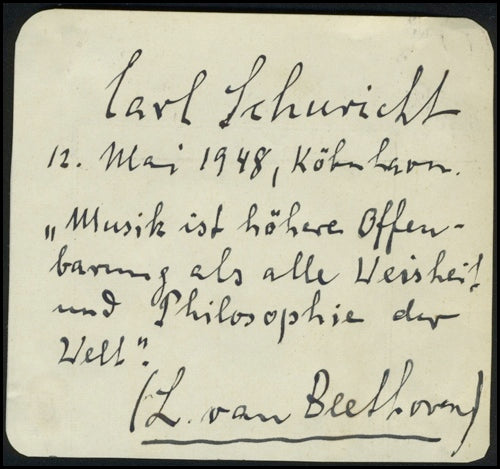 Carl Schuricht
12. Mai 1948, Köbnhavn.
„Musik ist höhere Offen-
barung als alle Weisheit
und Philosophie der
Welt".
(L. van Beethoven)